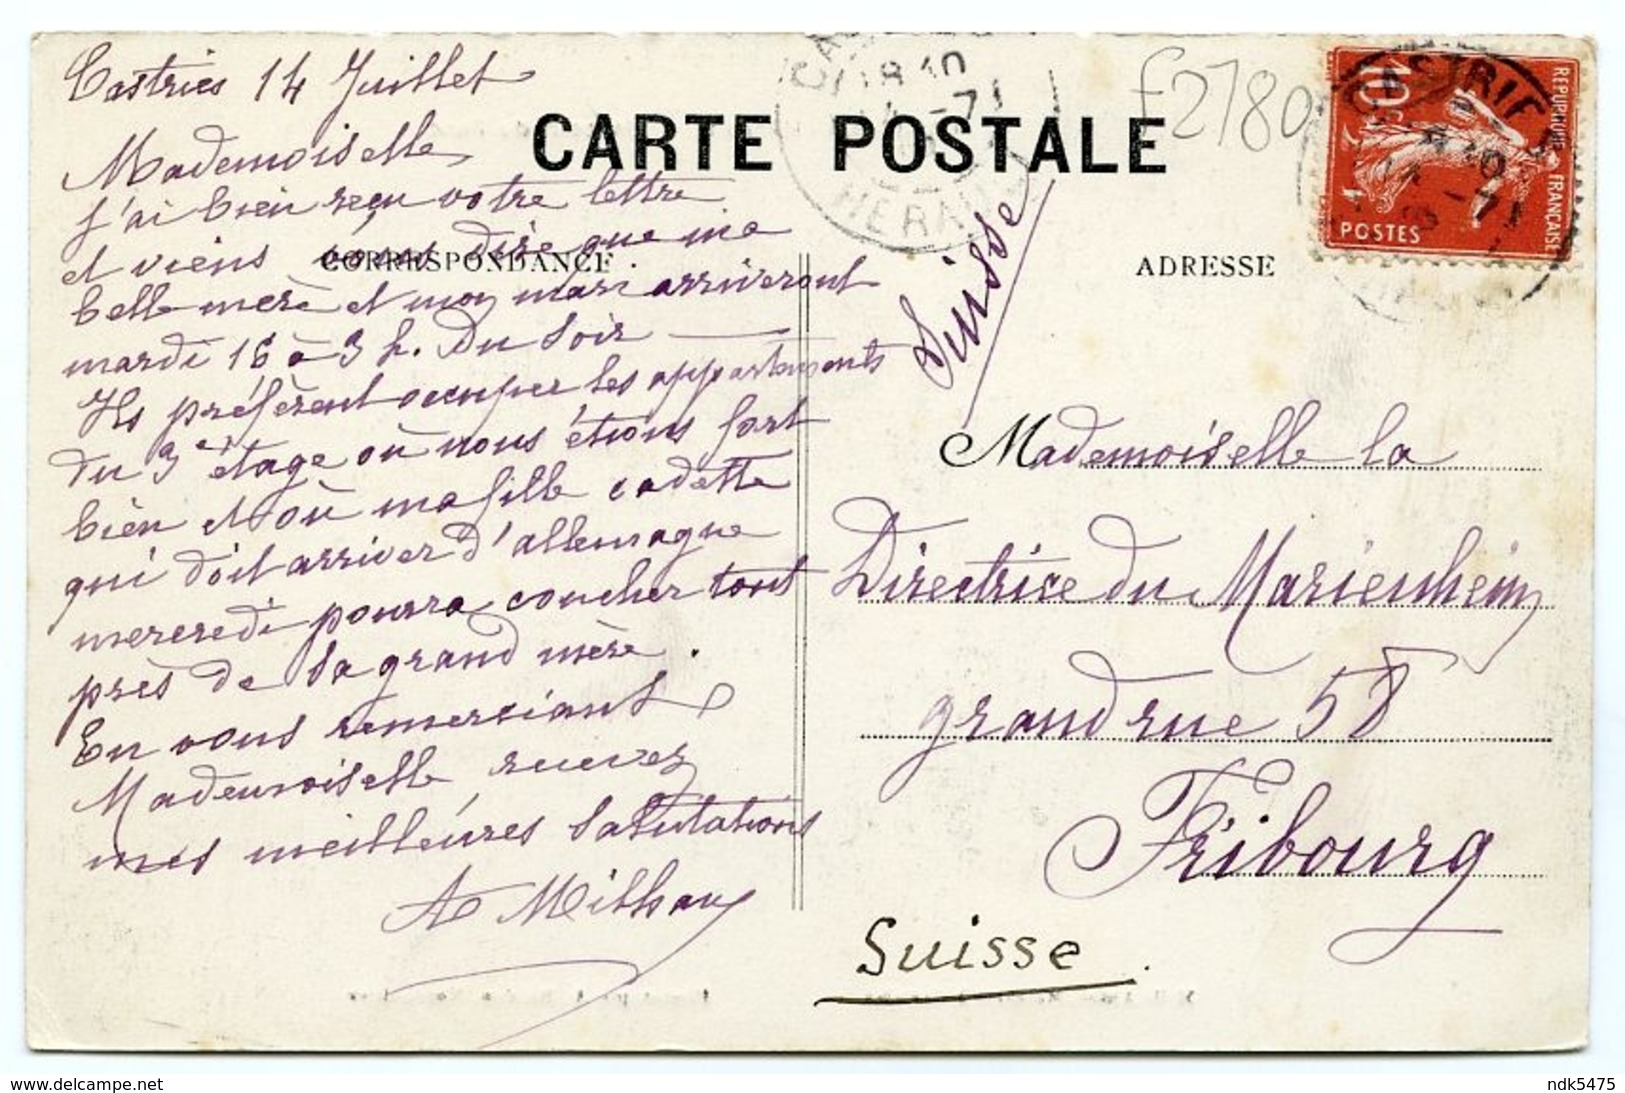 Castries 14 Juillet
Mademoiselle
j'ai bien reçu votre lettre
et viens vous dire que ma
belle mère et mon mari arriveront
mardi 16 à 3 h. Du Soir
Ils préfèrent occuper les appartements
du 3e étage où nous étions fort
bien et où ma fille cadette
qui doit arriver d'allemagne
mercredi pourra coucher tout
près de sa grand mère.
En vous remerciant
Mademoiselle recevez
mes meilleures salutations
A Milhau
CARTE POSTALE
CORRESPONDANCE
ADRESSE
£2780
HERAULT
CASTRIES
10c
REPUBLIQUE FRANÇAISE
POSTES
Suisse
Mademoiselle la
Directrice du Marienheim
grand rue 58
Fribourg
Suisse
delcampe.net
ndk5475